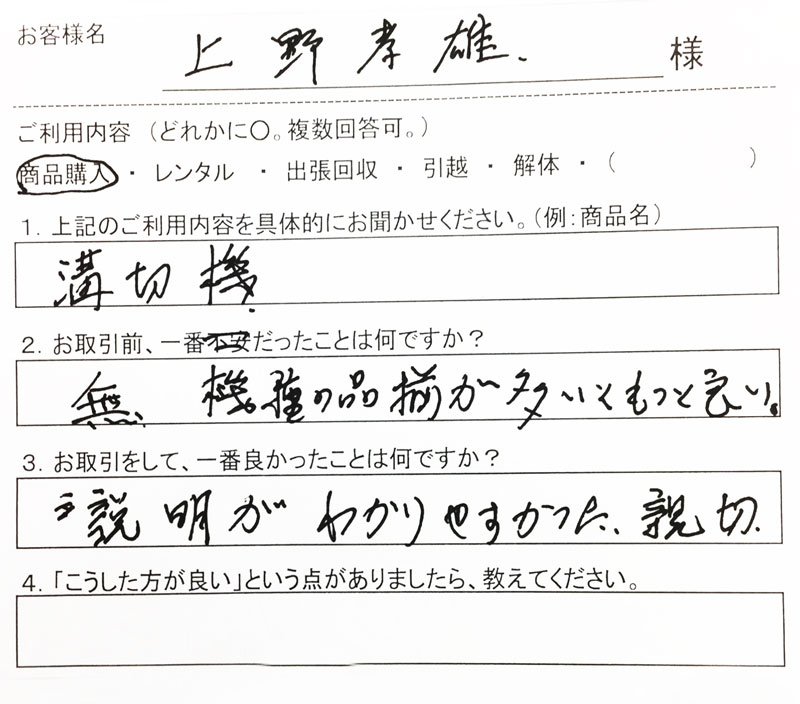 お客様名 上野孝雄. 様
ご利用内容 (どれかに〇。複数回答可。)
商品購入 ・ レンタル ・ 出張回収 ・ 引越 ・ 解体 ・ ( )
1. 上記のご利用内容を具体的にお聞かせください。(例:商品名)
溝切機
2. お取引前、一番不安だったことは何ですか?
無 機種の品揃が多いともっと良い。
3. お取引をして、一番良かったことは何ですか?
説明がわかりやすかった、親切.
4. 「こうした方が良い」という点がありましたら、教えてください。